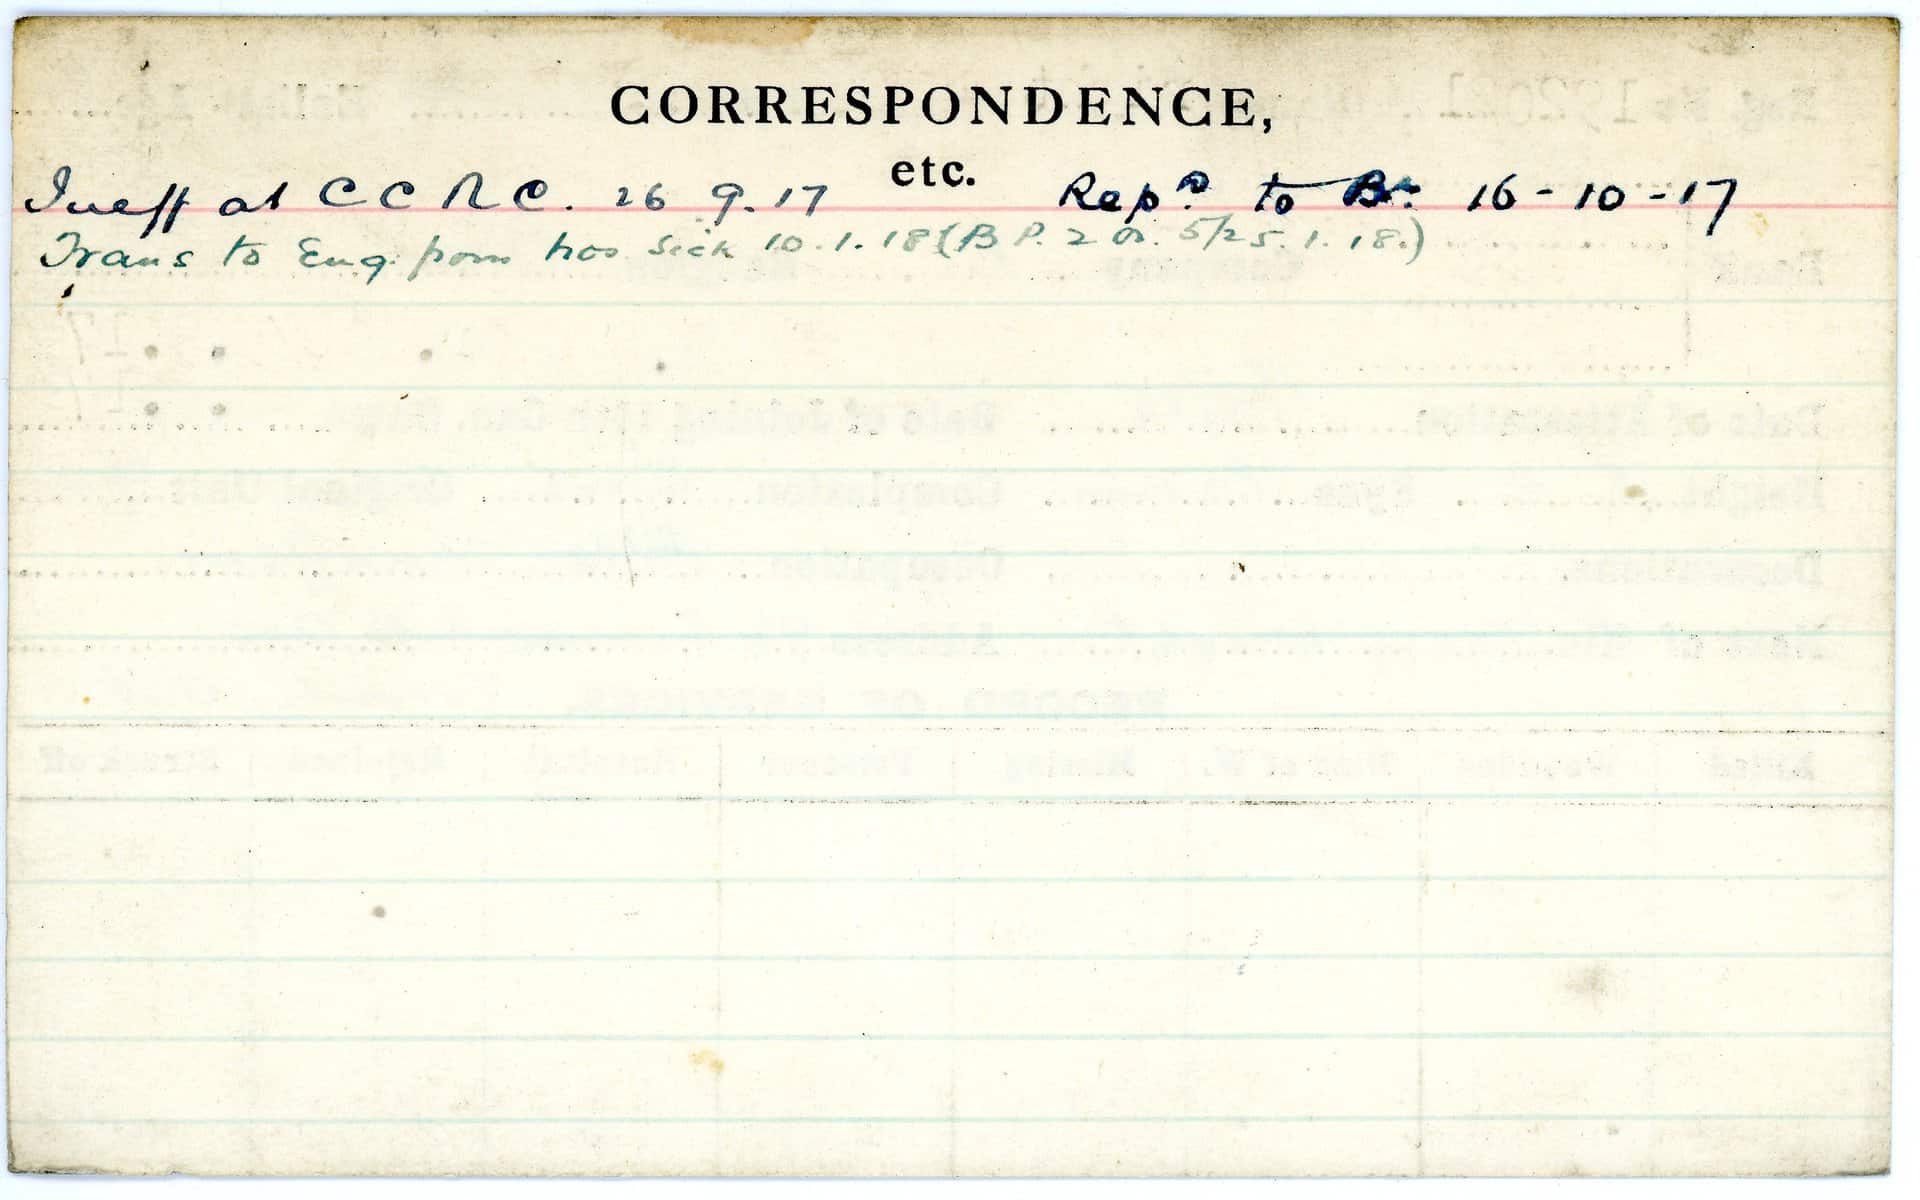 CORRESPONDENCE,
etc.
Ineff at CCRC. 26 9.17 Rep.d to Bn 16-10-17
Trans to Eng. from hos sick 10.1.18 (B P. 2 Or. 5/25.1.18.)